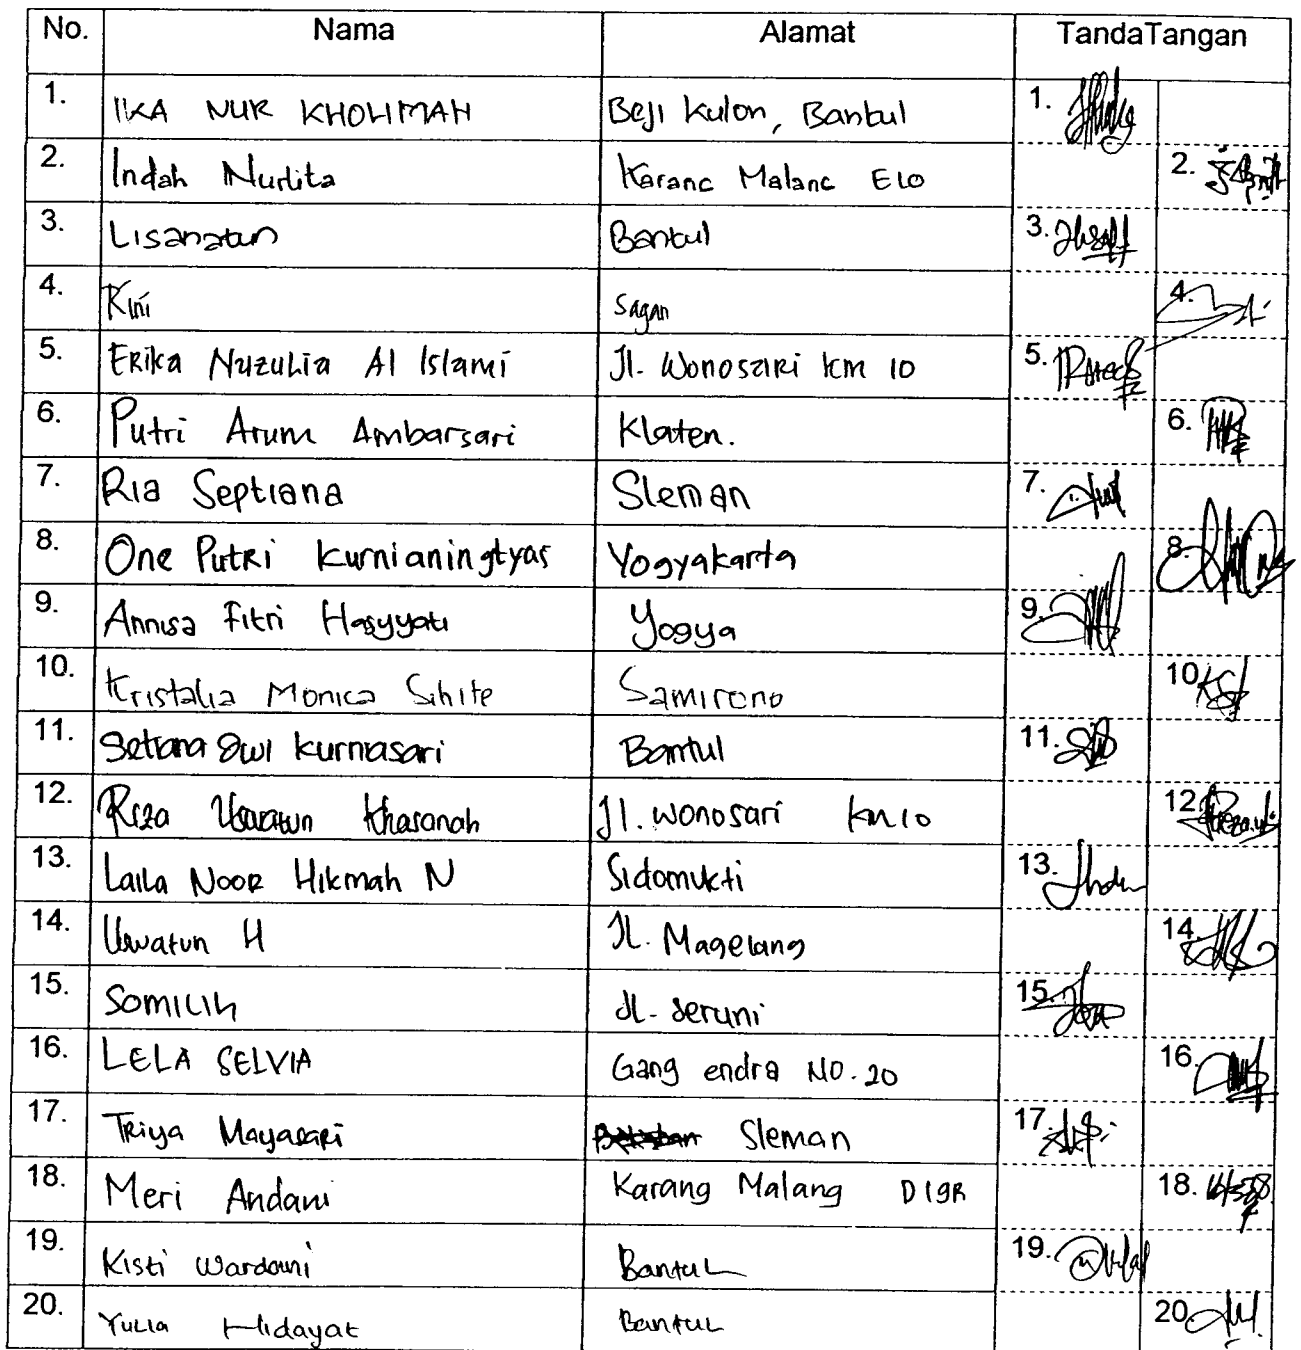 No. Nama Alamat TandaTangan
1. IKA NUR KHOLIMAH Beji Kulon, Bantul 1.
2. Indah Nurlita Karang Malang E10 2.
3. Lisanatun Bantul 3.
4. Rini Sagan 4.
5. Erika Nuzulia Al Islami Jl. Wonosari km 10 5.
6. Putri Arum Ambarsari Klaten. 6.
7. Ria Septiana Sleman 7.
8. One Putri Kurnianingtyas Yogyakarta 8.
9. Annisa Fitri Hasyyati Yogya 9.
10. Kristalia Monica Sihite Samirono 10.
11. Setiana Dwi Kurniasari Bantul 11.
12. Riza Uswatun Khasanah Jl. Wonosari km 10 12.
13. Laila Noor Hikmah N Sidomukti 13.
14. Uswatun H Jl. Magelang 14.
15. Somilih Jl. Seruni 15.
16. LELA SELVIA Gang endra NO. 20 16.
17. Triya Mayasari Sleman 17.
18. Meri Andani Karang Malang D19R 18.
19. Kisti Wardani Bantul 19.
20. Yulia Hidayat Bantul 20.